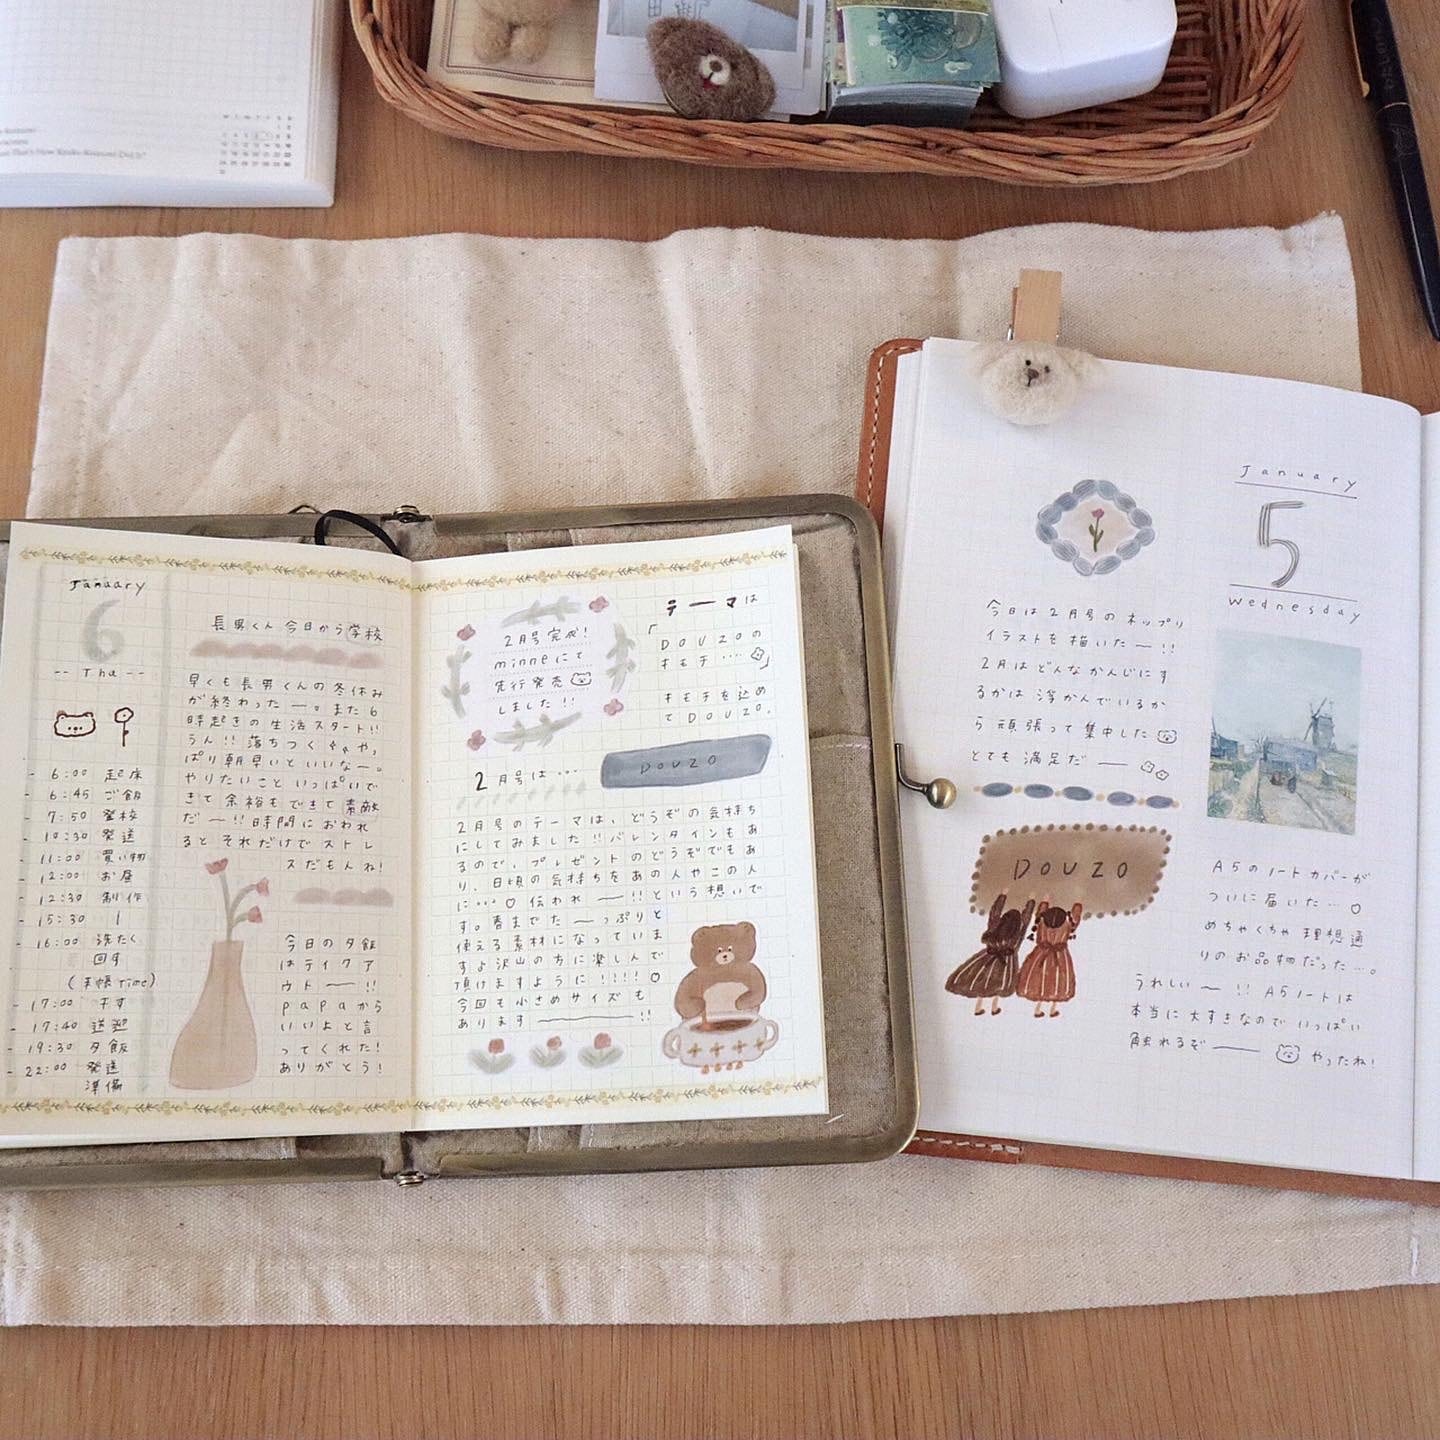 January
6
-- Thu --
- 6:00 起床
- 6:45 ご飯
- 7:50 登校
- 10:30 発送
- 11:00 買い物
- 12:00 お昼
- 12:30 制作
- 15:30
- 16:00 洗たく
回す
(手帳Time)
- 17:00 干す
- 17:40 送迎
- 19:30 夕飯
- 22:00 発送
準備
長男くん 今日から学校
早くも長男くんの冬休み
が終わったー。また6
時起きの生活スタート!!
うん!! 落ちつく
ぱり朝早いといいなー。
やりたいこといっぱいで
きて余裕もできて素敵
だー!! 時間におわれ
るとそれだけでストレ
スだもんね!
今日の夕飯
はテイクア
ウトー!!
papaから
いいよと言
ってくれた!
ありがとう!
2月号完成!
minneにて
先行発売
しました!!
テーマは
「DOUZOの
キモチ‥‥」
キモチを込め
てDOUZO.
2月号は…
DOUZO
2月号のテーマは、どうぞの気持ち
にしてみました!!バレンタインもあ
るので、プレゼントのどうぞでもあ
り、日頃の気持ちをあの人やこの人
に…♡伝われー!!という想いで
す。春までたーっぷりと
使える素材になっていま
すよ沢山の方に楽しんで
頂けますように!!!!♡
今回も小さめサイズも
ありますー!!
January
5
Wednesday
今日は2月号のネップリ
イラストを描いたー!!
2月はどんなかんじにす
るかは浮かんでいるか
ら頑張って集中した
とても満足だー
DOUZO
A5のノートカバーが
ついに届いた…♡
めちゃくちゃ理想通
りのお品物だった…。
うれしい〜!! A5ノートは
本当に大すきなのでいっぱい
触れるぞー やったね!